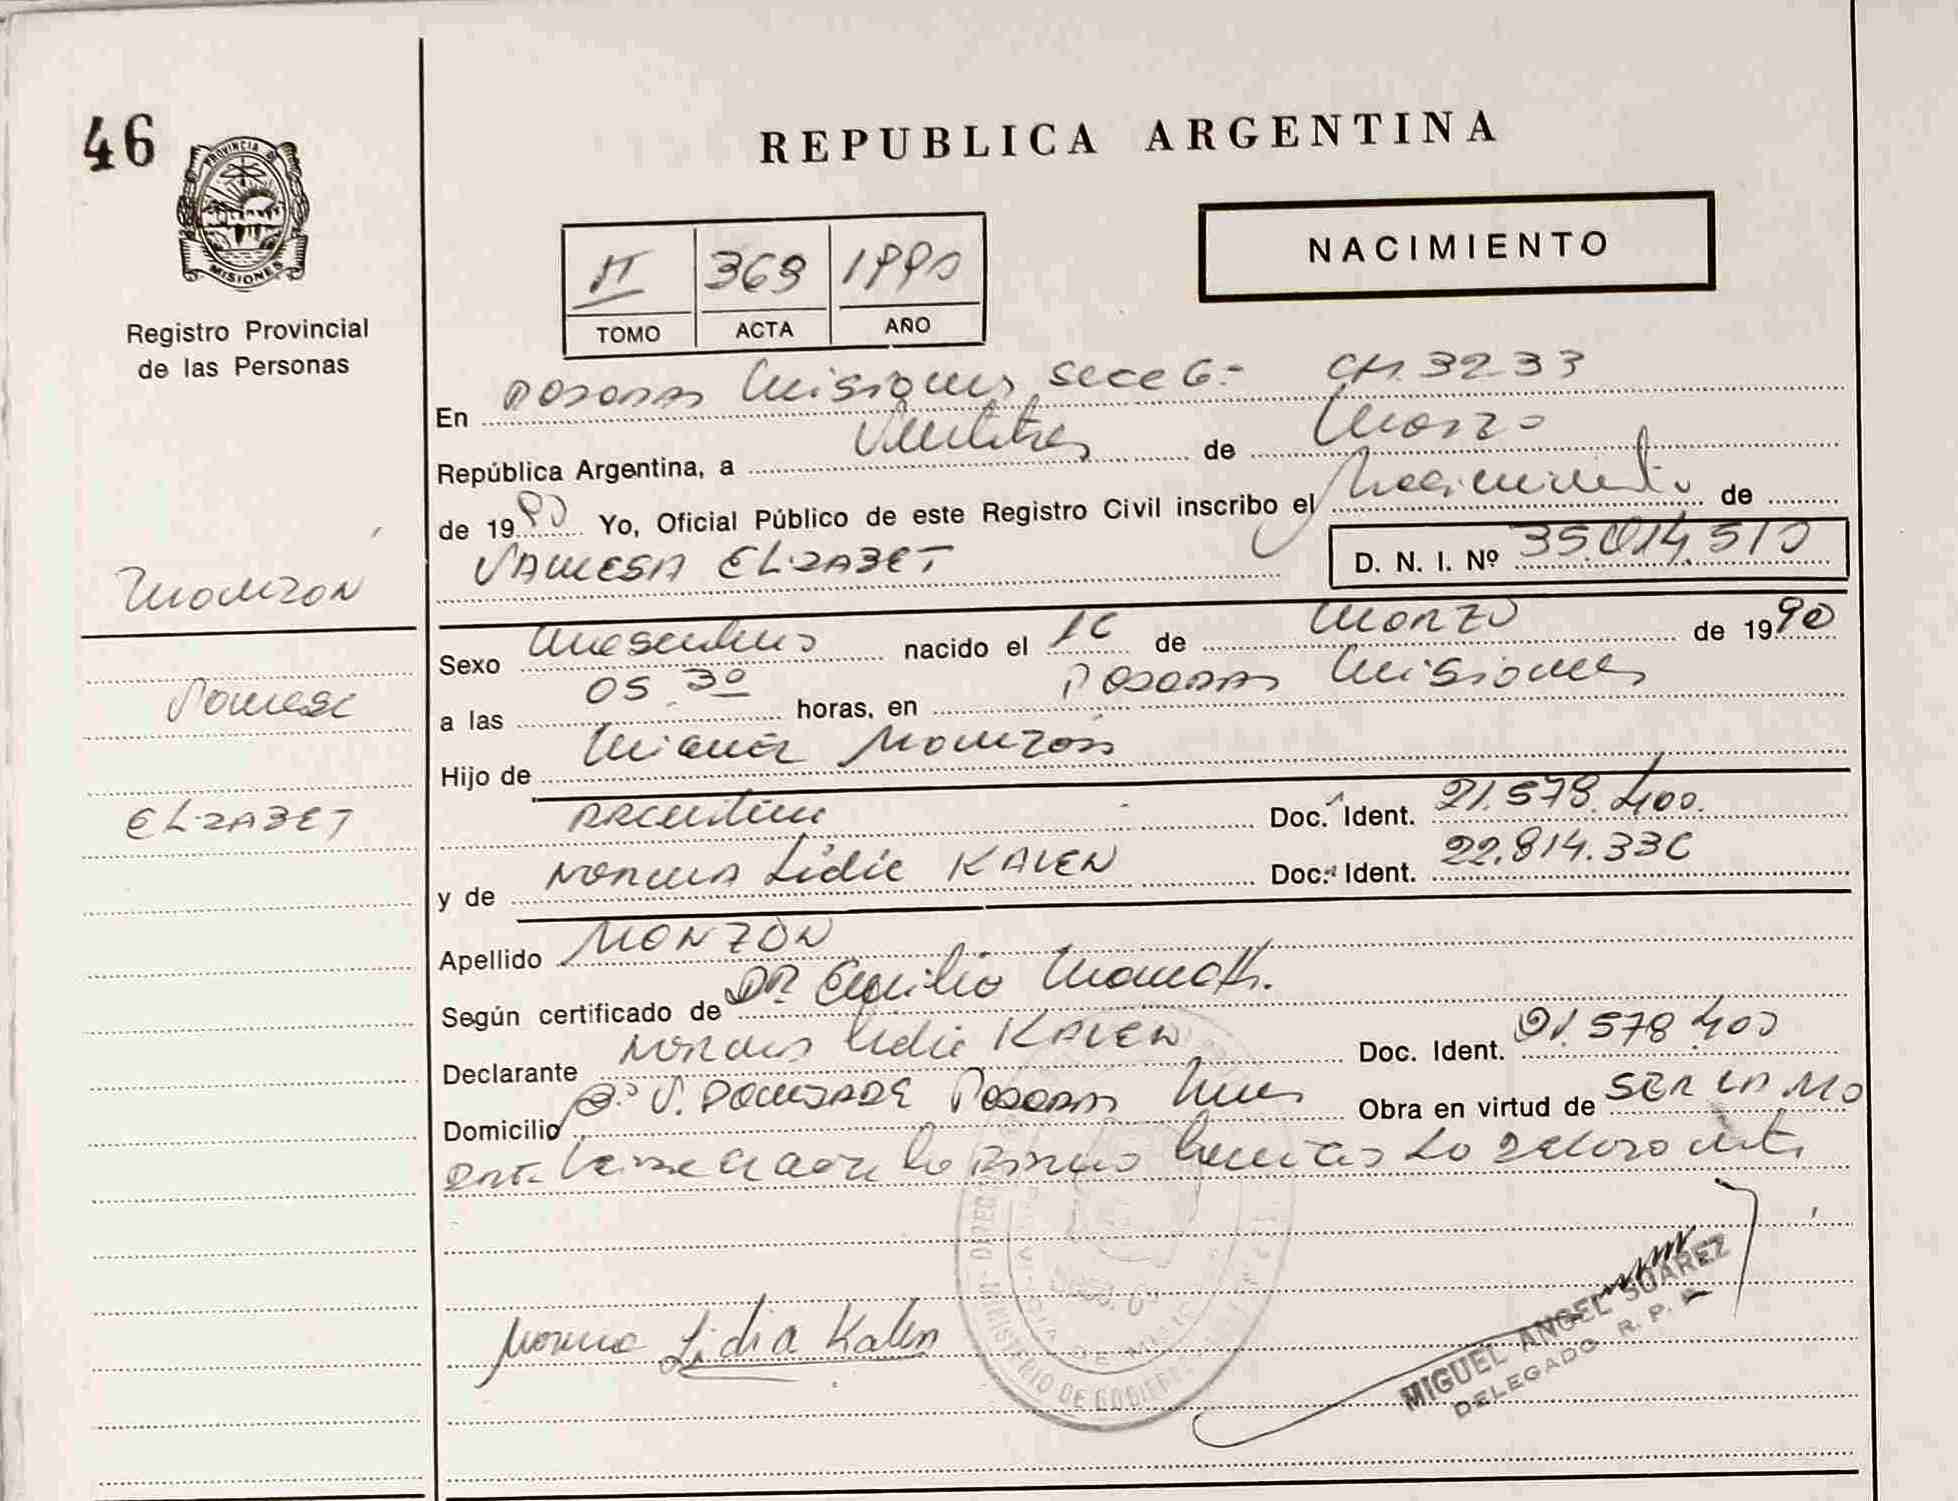 46
PROVINCIA DE
MISIONES
Registro Provincial
de las Personas
REPUBLICA ARGENTINA
NACIMIENTO
II 369 1990
TOMO ACTA AÑO
En POSADAS Misiones Secc 6.- CM. 3233
República Argentina, a Veintitres de Marzo
de 1990 Yo, Oficial Público de este Registro Civil inscribo el Nacimiento de
VANESA ELIZABET D. N. I. Nº 35.014.510
MONZON
Sexo Masculino nacido el 16 de MARZO de 1990
Vanesa
a las 05 30 horas, en POSADAS Misiones
Hijo de Miguel MONZON
ELIZABET
Argentino Doc. Ident. 21.578.400.
y de NORMA Lidia KALEN Doc. Ident. 22.814.336
Apellido MONZON
Según certificado de DR Emilio
Declarante NORMA Lidia KALEN Doc. Ident. 21.578.400
Domicilio POSADAS Mnes Obra en virtud de SER LA MA
DRE.- Leida el acta la firma
Norma Lidia Kalen
MINISTERIO DE GOBIERNO
MIGUEL ANGEL SUAREZ
DELEGADO R. P. P.